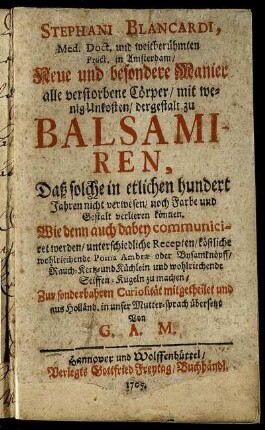 STEPHANI BLANCARDI,
Med. Doct. und weitberühmten
Pract. in Amsterdam/
Neue und besondere Manier
alle verstorbene Cörper/ mit we-
nig Unkosten/ dergestalt zu
BALSAMI-
REN,
Daß solche in etlichen hundert
Jahren nicht verwesen/ noch Farbe und
Gestalt verlieren können.
Wie denn auch dabey communici-
ret werden/ unterschiedliche Recepten/ köstliche
wohlriechende Poma Ambræ oder Bysamknöpff/
Rauch-Kertz- und Küchlein und wohlriechende
Seiffen-Kugeln zu machen/
Zur sonderbahren Curiosität mitgetheilet und
aus Holländ. in unser Mutter-sprach übersetzt
Von
G. A. M.
Hannover und Wolffenbüttel/
Verlegts Gottfried Freytag/ Buchhändl.
1705.